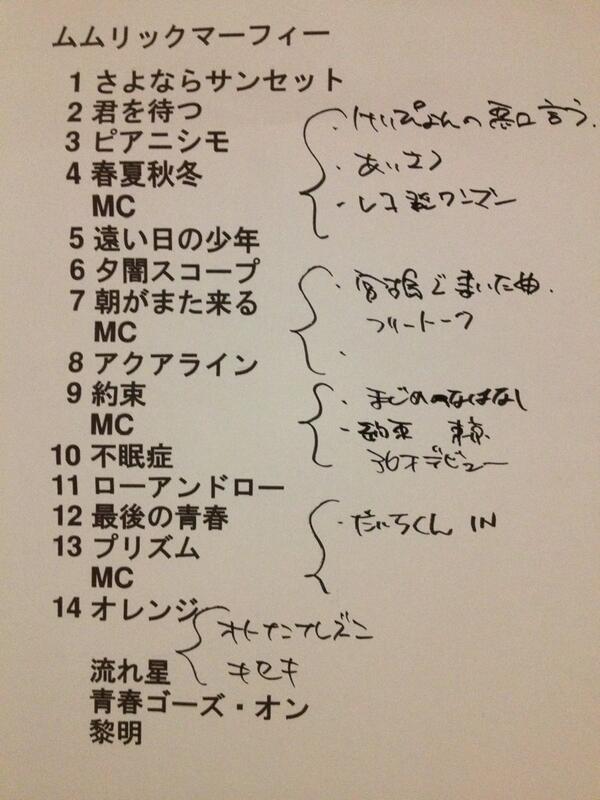 ムムリックマーフィー
1 さよならサンセット
2 君を待つ
3 ピアニシモ
4 春夏秋冬
MC
・けいぴょんの悪口言う.
・あいさつ
・レコ発ワンマン
5 遠い日の少年
6 夕闇スコープ
7 朝がまた来る
MC
・宮古島でまいた曲.
フリートーク
・
8 アクアライン
9 約束
MC
・まじめなはなし
・約束 東京
30才デビュー
10 不眠症
11 ローアンドロー
12 最後の青春
13 プリズム
MC
・だいちくん IN
14 オレンジ
オトナプレズン
キセキ
流れ星
青春ゴーズ・オン
黎明